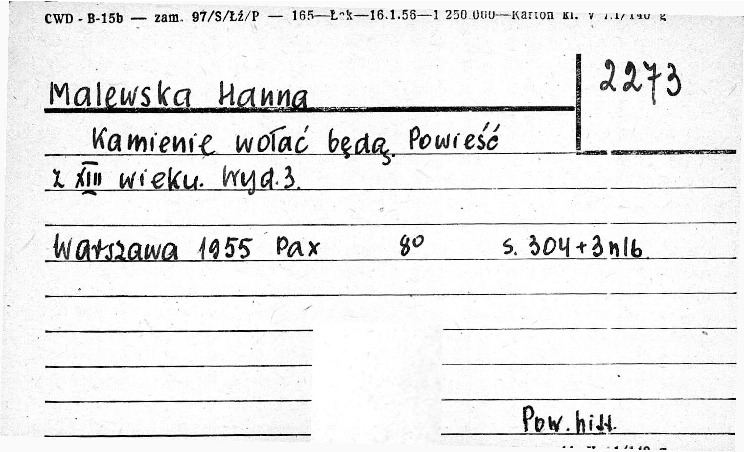 CWD - B-15b — zam. 97/S/Łź/P — 165—Łok—16.1.56—1 250 000—Karton kl. V 140 g
2273
Malewska Hanna
Kamienie wołać będą. Powieść
z XIII wieku. Wyd.3.
Warszawa 1955 Pax 8⁰ s. 304+3nlb.
Pow. hist.